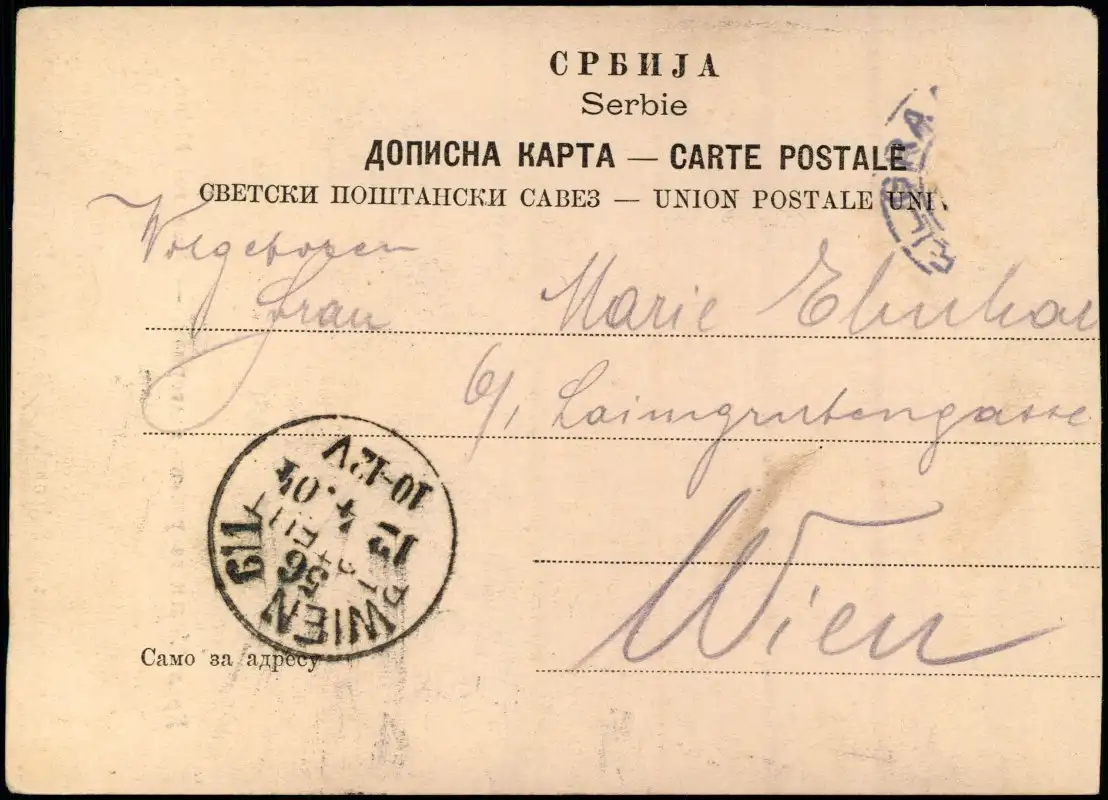 СРБИЈА
Serbie
ДОПИСНА КАРТА — CARTE POSTALE
СВЕТСКИ ПОШТАНСКИ САВЕЗ — UNION POSTALE UNI
Wolgeboren
Frau Marie
6/1 Laimgrubengasse
Wien
10-12V
WIEN
56
Само за адресу